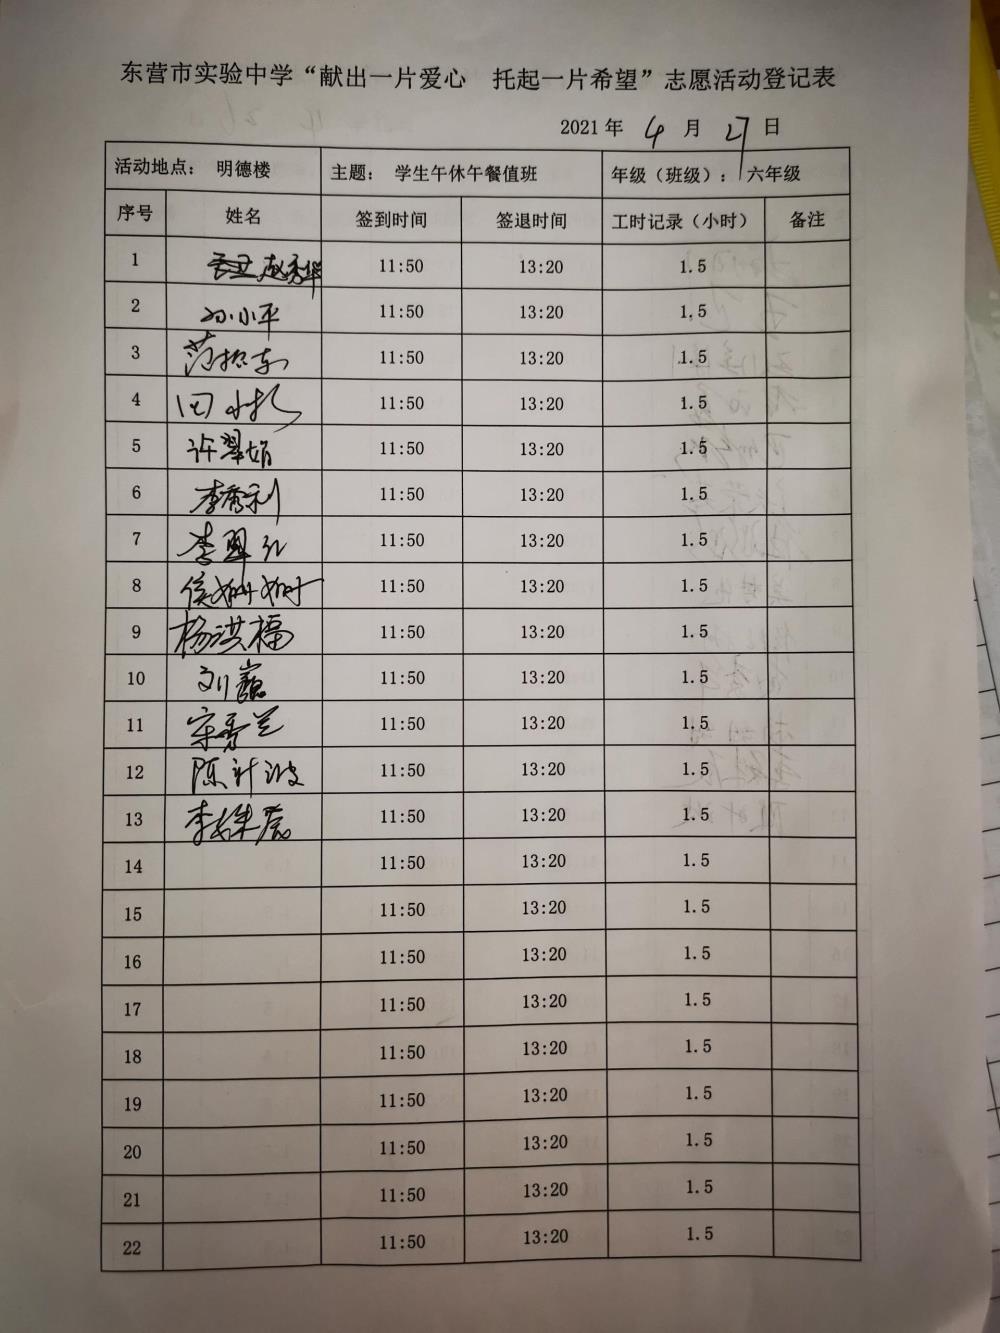 东营市实验中学“献出一片爱心 托起一片希望”志愿活动登记表
2021年 4 月 27 日
活动地点： 明德楼 主题： 学生午休午餐值班 年级（班级）：六年级
序号 姓名 签到时间 签退时间 工时记录（小时） 备注
1 赵秀华 11:50 13:20 1.5
2 孙小平 11:50 13:20 1.5
3 范振东 11:50 13:20 1.5
4 田 11:50 13:20 1.5
5 许翠娟 11:50 13:20 1.5
6 李秀利 11:50 13:20 1.5
7 李翠红 11:50 13:20 1.5
8 侯姗姗 11:50 13:20 1.5
9 杨洪福 11:50 13:20 1.5
10 刘巍 11:50 13:20 1.5
11 宋秀兰 11:50 13:20 1.5
12 陈叶波 11:50 13:20 1.5
13 李 11:50 13:20 1.5
14 11:50 13:20 1.5
15 11:50 13:20 1.5
16 11:50 13:20 1.5
17 11:50 13:20 1.5
18 11:50 13:20 1.5
19 11:50 13:20 1.5
20 11:50 13:20 1.5
21 11:50 13:20 1.5
22 11:50 13:20 1.5